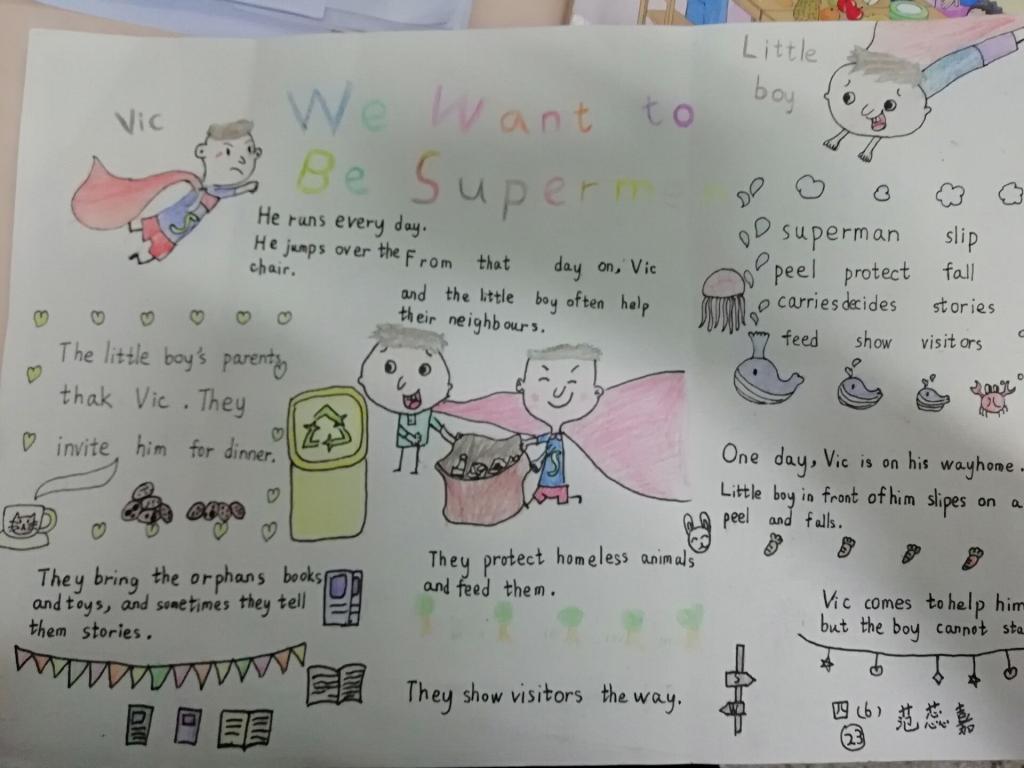 Vic
We Want to
Be Superman
Little
boy
He runs every day.
He jumps over the
chair.
From that day on, Vic
and the little boy often help
their neighbours.
superman slip
peel protect fall
carries decides stories
feed show visitors
The little boy's parents
thak Vic. They
invite him for dinner.
One day, Vic is on his wayhome.
Little boy in front of him slipes on a
peel and falls.
They protect homeless animals
and feed them.
They bring the orphans books
and toys, and sometimes they tell
them stories.
Vic comes to help him
but the boy cannot sta
They show visitors the way.
四(6) 范蕊嘉
23